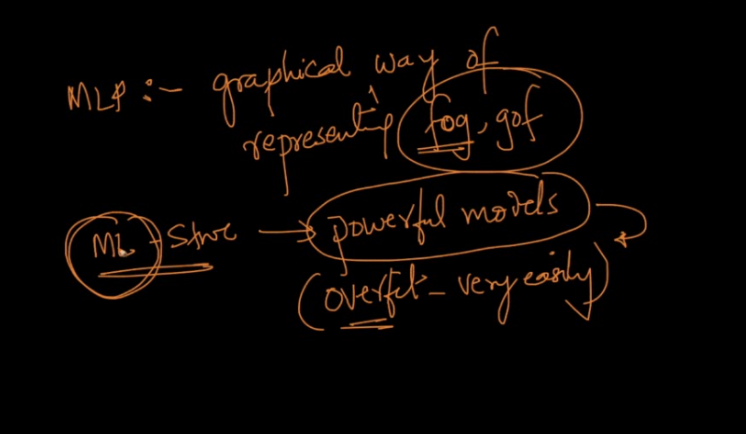 MLP :- graphical way of
representing fog, gof
ML - Struc → powerful models
(overfit - very easily)